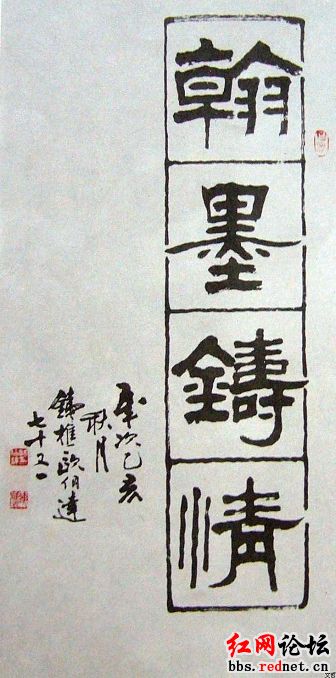 翰墨鑄情
歲次乙亥
秋月
歐伯達
七十又一
红网论坛
bbs.rednet.cn